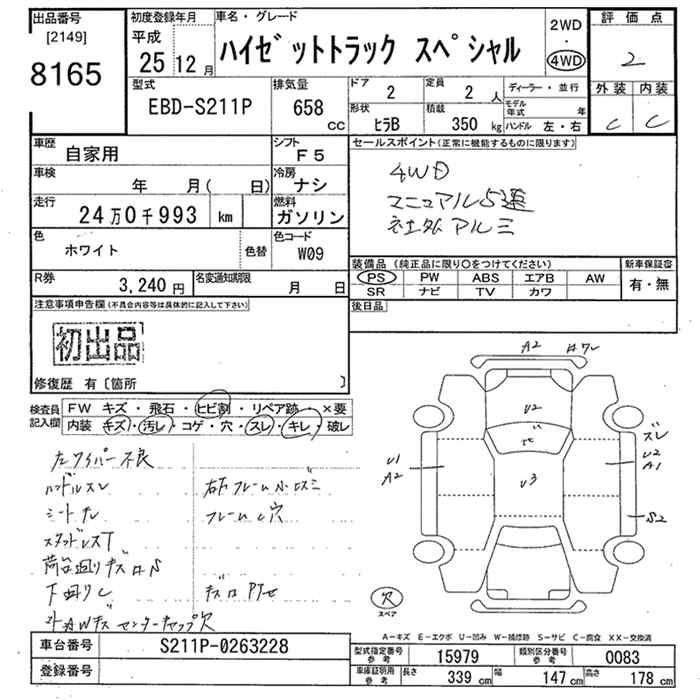 出品番号 初度登録年月 車名・グレード 2WD 評価点
[2149] 平成 ハイゼットトラック スペシャル ・ 2
8165 25 12月 4WD
型式 排気量 ドア 定員 ディーラー・並行 外装 内装
EBD-S211P 658 cc 2 2人 モデル年式 年 C C
形状 積載
ヒラB 350 kg ハンドル 左・右
車歴 自家用 シフト F5 セールスポイント(正常に機能するものに限ります)
車検 年 月( 日) 冷房 ナシ 4WD
走行 24万0千993 km 燃料 ガソリン マニュアル5速
社外アルミ
色 ホワイト 色替 色コード W09
装備品 (純正品に限り○をつけてください) 新車保証書
PS PW ABS エアB AW 有・無
SR ナビ TV カワ
R券 3,240円 名変通知期限 月 日
後日品
注意事項申告欄(不具合内容等は具体的に記入して下さい)
初出品
修復歴 有〔箇所 〕
検査員記入欄 FW キズ・飛石・ヒビ割・リペア跡・×要
内装 キズ・汚レ・コゲ・穴・スレ・キレ・破レ
左ワイパー不良
ハンドルスレ
シートキレ
スタッドレスT
荷台廻りキズ
下廻り
右下フレーム
フレーム 穴
センターキャップ欠
A2
U2
U3
U1
A1
スレ
U2
A1
S2
欠
スペア
A-キズ E-エクボ U-凹み W-補修跡 S-サビ C-腐食 XX-交換済
車台番号 S211P-0263228
登録番号
型式指定番号参考 15979 類別区分番号参考 0083
車庫証明用参考 長さ 339 cm 幅 147 cm 高さ 178 cm